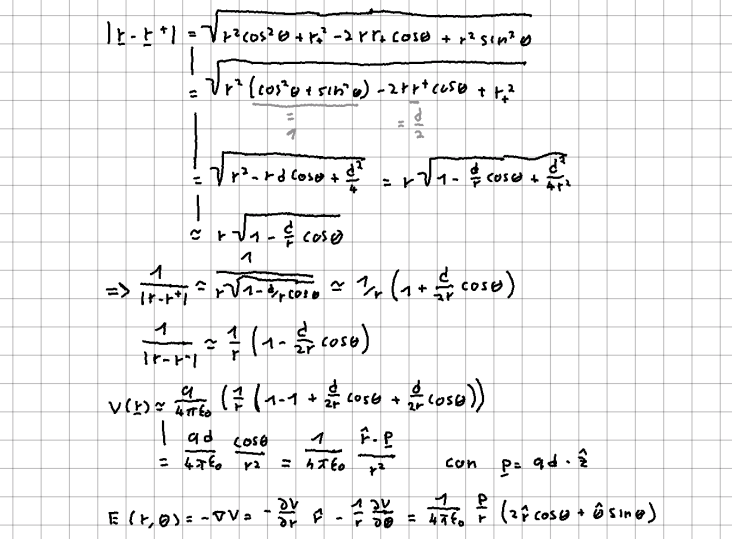 |r - r⁺| = √(r²cos²θ + r₊² - 2 r r₊ cosθ + r² sin²θ)
= √(r² (cos²θ + sin²θ) - 2 r r⁺ cosθ + r₊²)
= 1 = d/2
= √(r² - r d cosθ + d²/4) = r √(1 - d/r cosθ + d²/4r²)
≃ r √(1 - d/r cosθ)
=> 1/|r-r⁺| ≃ 1/(r√(1-d/r cosθ)) ≃ 1/r (1 + d/2r cosθ)
1/|r-r⁻| ≃ 1/r (1 - d/2r cosθ)
V(r) ≃ q/4πε₀ (1/r (1-1 + d/2r cosθ + d/2r cosθ))
= qd/4πε₀ cosθ/r² = 1/4πε₀ r̂·p/r² con p = qd · ẑ
E (r,θ) = -∇V = -∂V/∂r r̂ - 1/r ∂V/∂θ = 1/4πε₀ p/r (2r̂ cosθ + θ̂ sinθ)